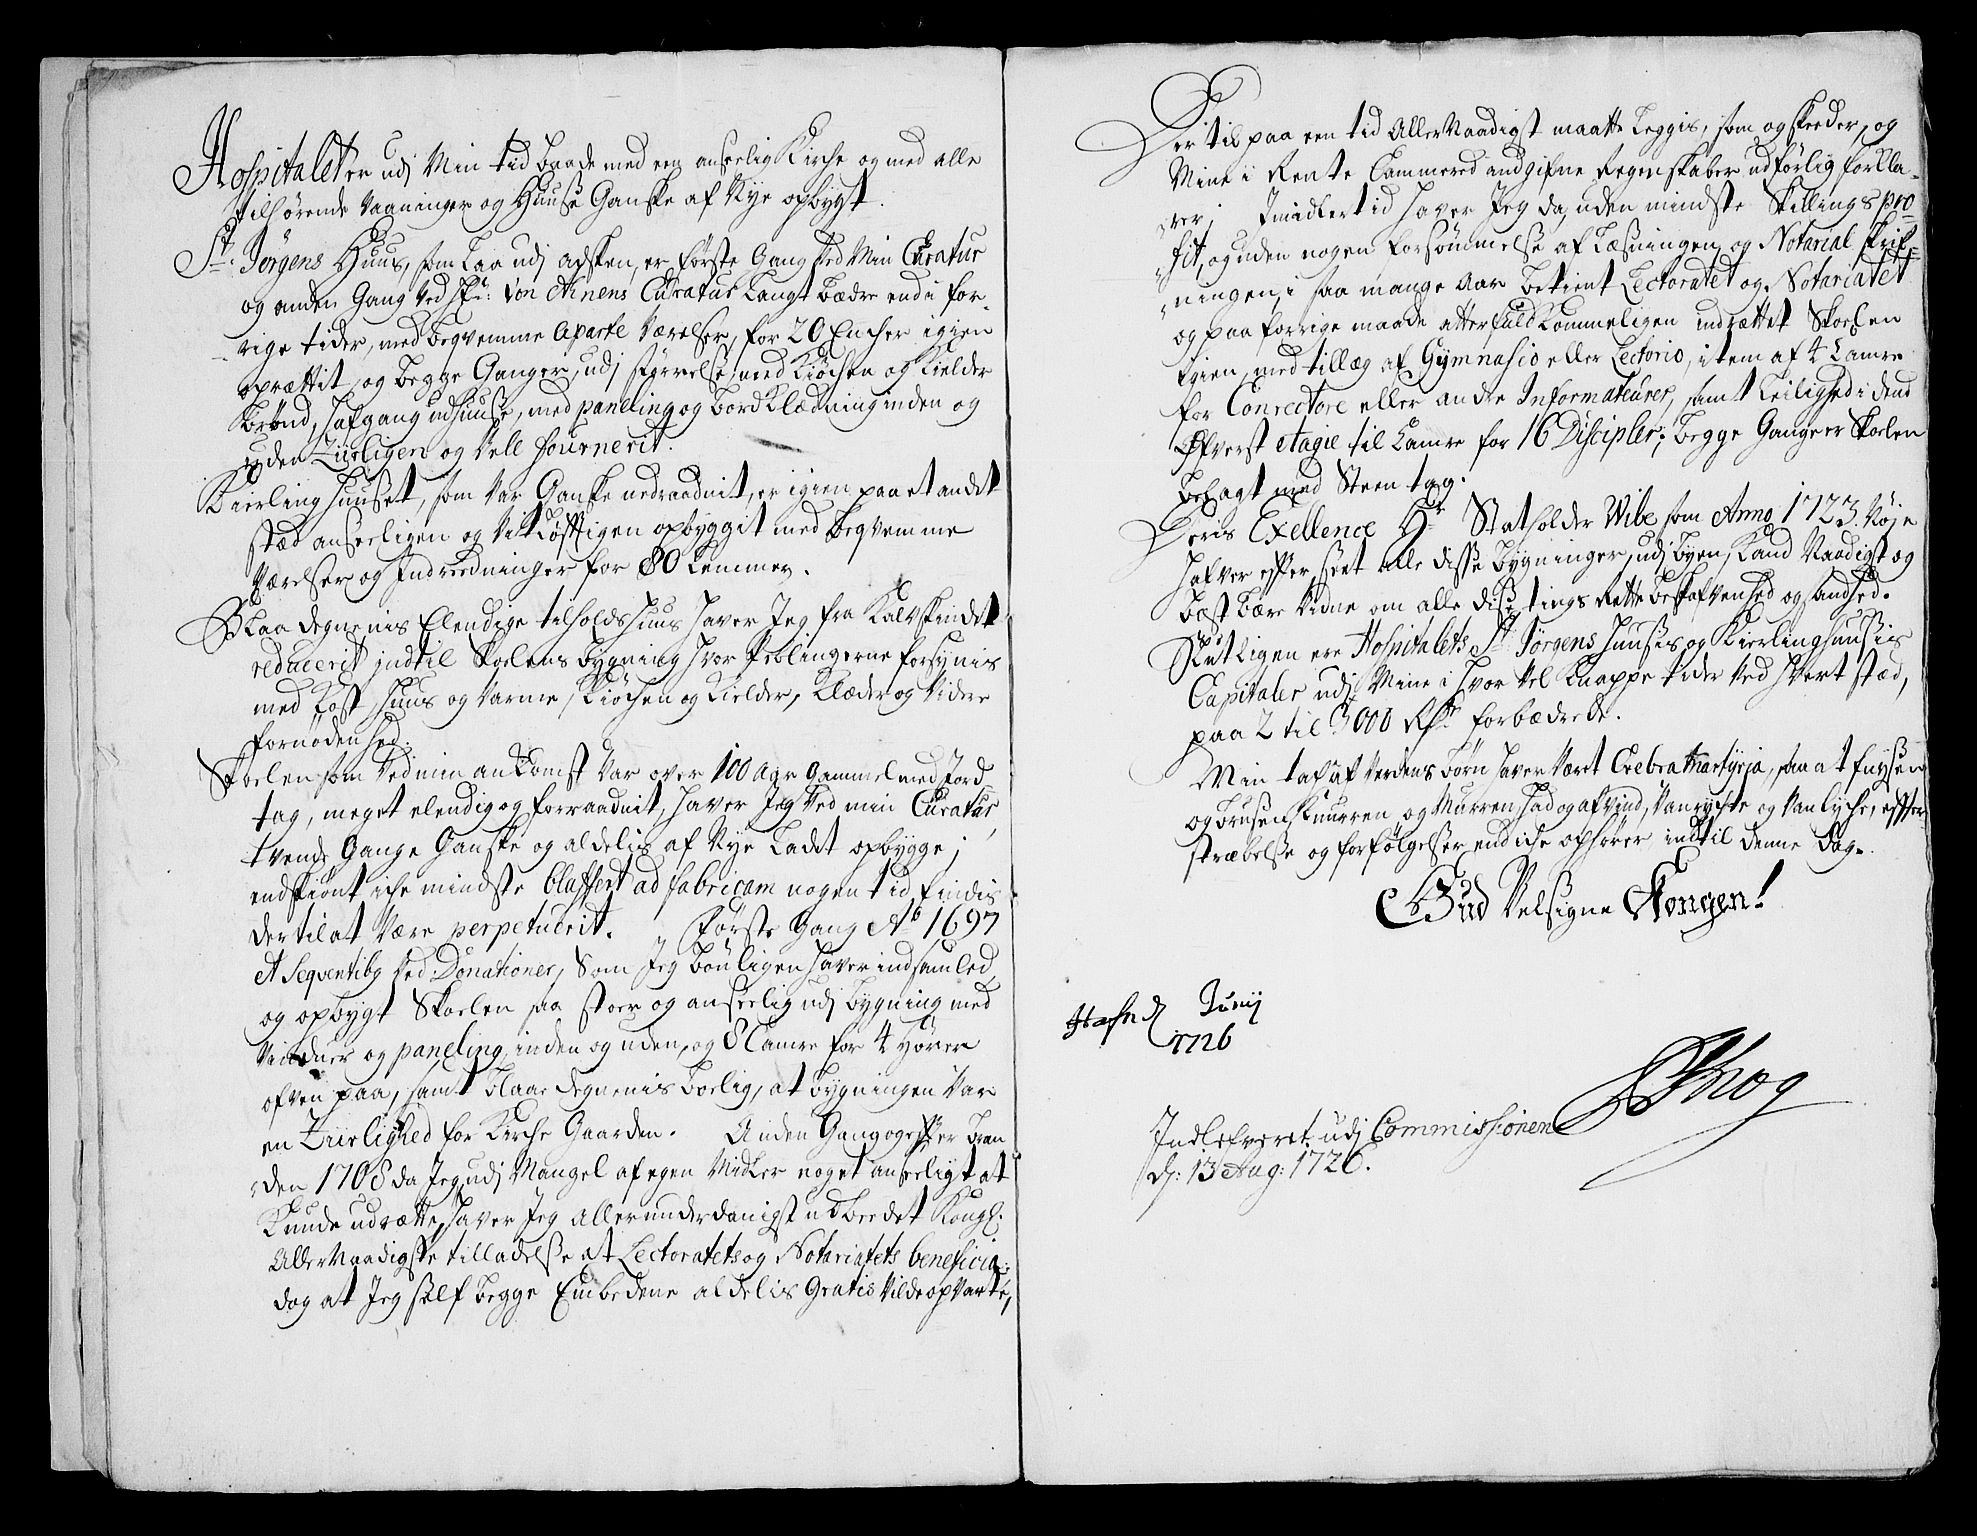 Hospitalet er udj Min tid baade med een anseelig Kirche og med alle
tilhørende Vaaninger og Huuse Ganske af Nye opbygt.
St: Jørgens Huus, som laa udj adsken, er første Gang ved Min Curatur
og anden Gang ved Hr: Von Ahnens Curatur langt bædre end i for-
rige tider, med beqvemme aparte Værelser, for 20 Encher igien
oprættit, og begge Ganger, udj størrelse, med Kiøchen og Kielder
brønd, hafgang udhuuse, med paneling og bordklædning inden og
uden Ziirligen og Velle fournerit.
Kierlinghuuset, som var Ganske nedraadnit, er igien paa et andet
stæd anseeligen og Vitløfftigen opbyggit med beqvemme
Værelser og Indreedninger for 80 Lemmer.
Blaa degnenis Elendige tilholdshuus haver Jeg fra Kalvskindet
reducerit indtil Skolens bygning hvor Peblingerne forsynis
med Kost, Huus og Varme, Kiøchen og Kielder, Klæder og Videre
fornødenhed.
Skoelen som ved min ankomst var over 100 aar gammel med Jord
tag, meget elendig og forraadnit, haver Jeg ved min Curatur,
tvende Gange Ganske og aldelis af Nye ladet opbygge;
endskiønt iche mindste blaffert ad fabricam nogen tid findis
der til at være perpetuerit. Første Gang Ao 1697
et seqventibg ved Donationer, som Jeg bønligen haver indsamled,
og opbygt Skoelen saa stoer og anseelig udj bygning med
Vinduer og paneling, inden og uden, og 8 Camre for 4 Hørrer
ofven paa, samt blaae degnenis boelig, at bygningen var
en Ziirlighed for Kirche Gaarden. Anden Gang og effter bran
den 1708 da Jeg, udj Mangel af egen Midler noget anseeligt at
Kunde udrætte, haver Jeg allerunderdanigst udbeedet Kongl.
Aller Naadigste tilladelse at Lectoratets og Notariatets beneficia,
dog at Jeg self begge Embedene aldelis Gratis Vilde opvarte,
Der til paa een tid Aller Naadigst maatte leggis, som og skeeder, og
Mine i Rente Cammeret andgifne Regenskaber udførlig forkla-
rer; Imidlertid haver Jeg da, uden mindste Skillings pro-
fit, og uden nogen forsømmelse af læsningen og Notarial skrif-
ningen, i saa mange Aar betient Lectoratet og Notariatet
og paa forrige maade atter fuldkommeligen indrættet Skoelen
igien, med tillæg af Gymnasio eller Lectorio, item af 4 Camre
for Conrectore eller andre Informateurer, samt leilighed i dend
Øfverst etagie til Camre for 16 Discipler; begge Gange er Skoelen
belagt med Steen tag.
Deris Exellence Hr Statholder Wibe som Anno 1723. Nøje
hafver effterseet alle disse bygninger, udj byen, Kand Naadigst og
bæst bære Vidne om alle disse tings Rette beskafvenhed og sandhed.
Slutligen ere Hospitalets, St: Jørgens huusis og Kierlinghuusis
Capitaler udj Mine i hvor vel Knappe tider ved hvert stæd,
paa 2 til 3000 Rdr forbædrede.
Min tak af Verdens børn haver været Crebra Martyria, saa at fnysen
og brusen, Knurren og Murren, had og afvind, Vanrychte og Vanlyche, effter-
stræbelse og forfølgelser, end iche ophører indtil denne dag.
Gud Velsigne Kongen!
Hafn d Junij
1726
Krog
Indlefveret udj Commissionen
d: 13 Aug: 1726.